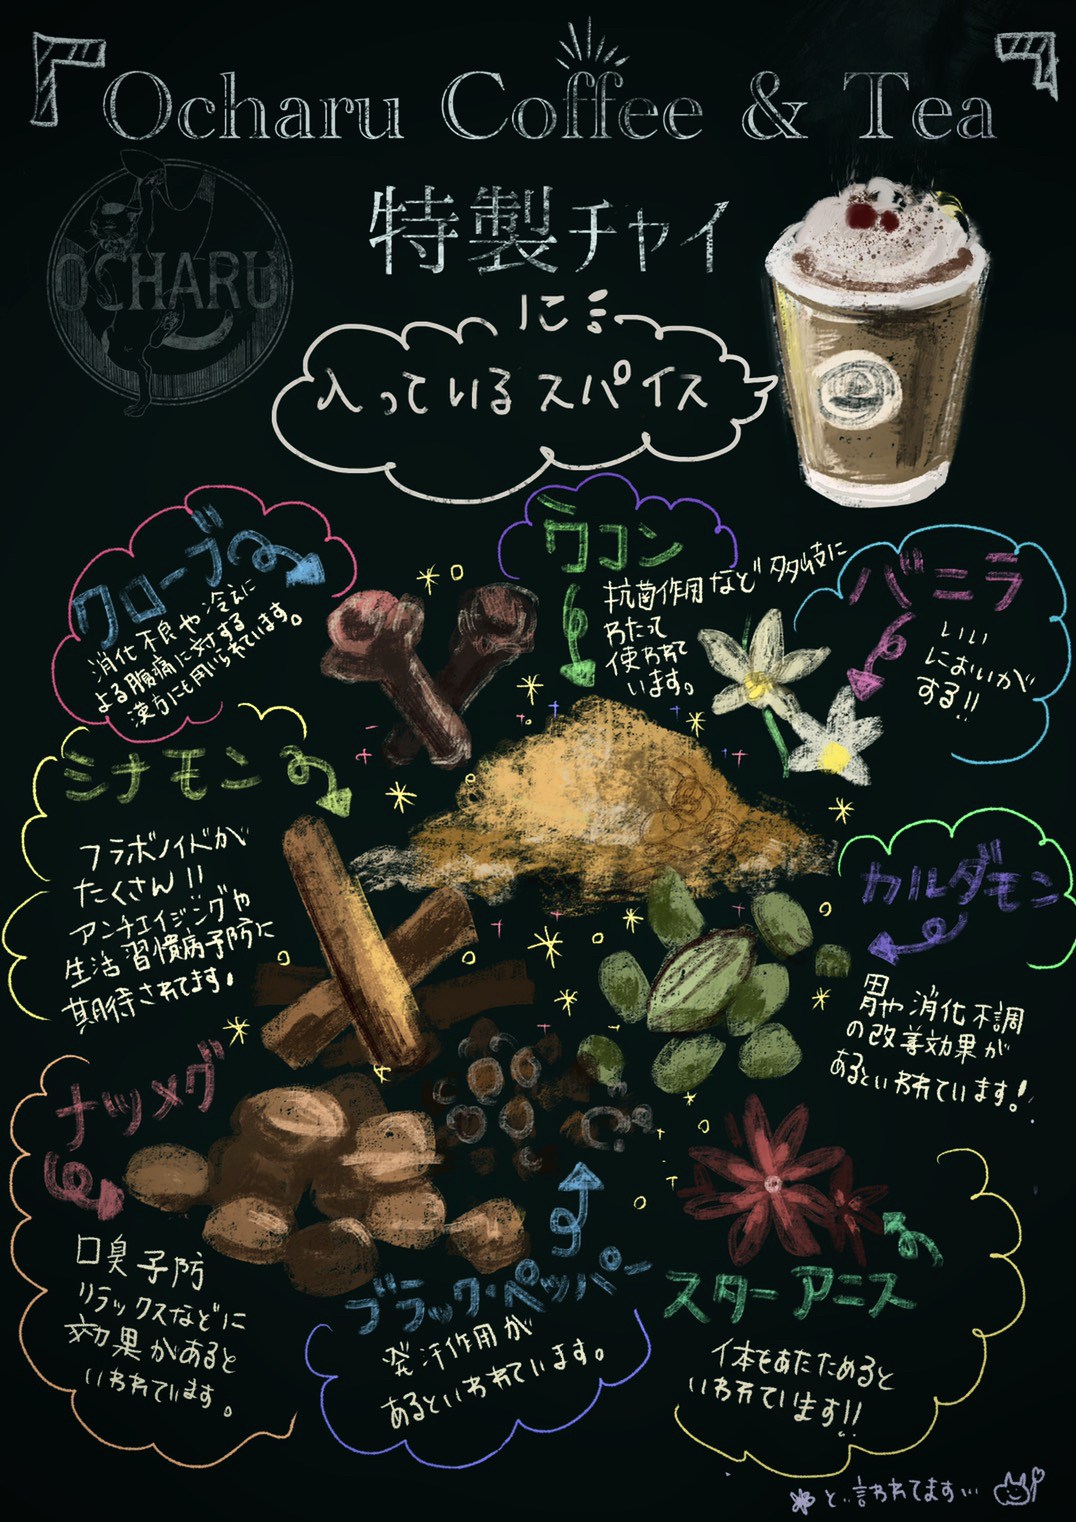 「Ocharu Coffee & Tea」
OCHARU
特製チャイ
に
入っているスパイス
クローブ
消化不良や冷えに
よる腹痛に対する
漢方にも用いられています。
ウコン
抗菌作用など多岐に
わたって
使われて
います。
バニラ
いい
においが
する!!
シナモン
フラボノイドが
たくさん!!
アンチエイジングや
生活習慣病予防に
期待されてます。
カルダモン
胃や消化不調
の改善効果が
あるといわれています!
ナツメグ
口臭予防
リラックスなどに
効果があると
いわれています。
ブラック・ペッパー
発汗作用が
あるといわれています。
スターアニス
体もあたためると
いわれています!!
と..言われてます…